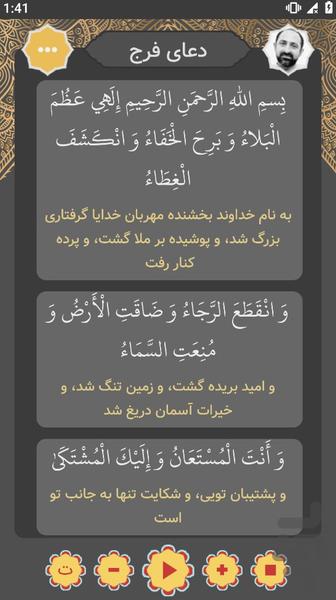 1:41
دعای فرج
بِسمِ اللهِ الرَّحمَنِ الرَّحِيمِ إِلَهِي عَظُمَ
الْبَلاءُ وَ بَرِحَ الْخَفَاءُ وَ انْكَشَفَ
الْغِطَاءُ
به نام خداوند بخشنده مهربان خدایا گرفتاری
بزرگ شد، و پوشیده بر ملا گشت، و پرده
کنار رفت
وَ انْقَطَعَ الرَّجَاءُ وَ ضَاقَتِ الْأَرْضُ وَ
مُنِعَتِ السَّمَاءُ
و امید بریده گشت، و زمین تنگ شد، و
خیرات آسمان دریغ شد
وَ أَنْتَ الْمُسْتَعَانُ وَ إِلَيْكَ الْمُشْتَكَىٰ
و پشتیبان تویی، و شکایت تنها به جانب تو
است
ت